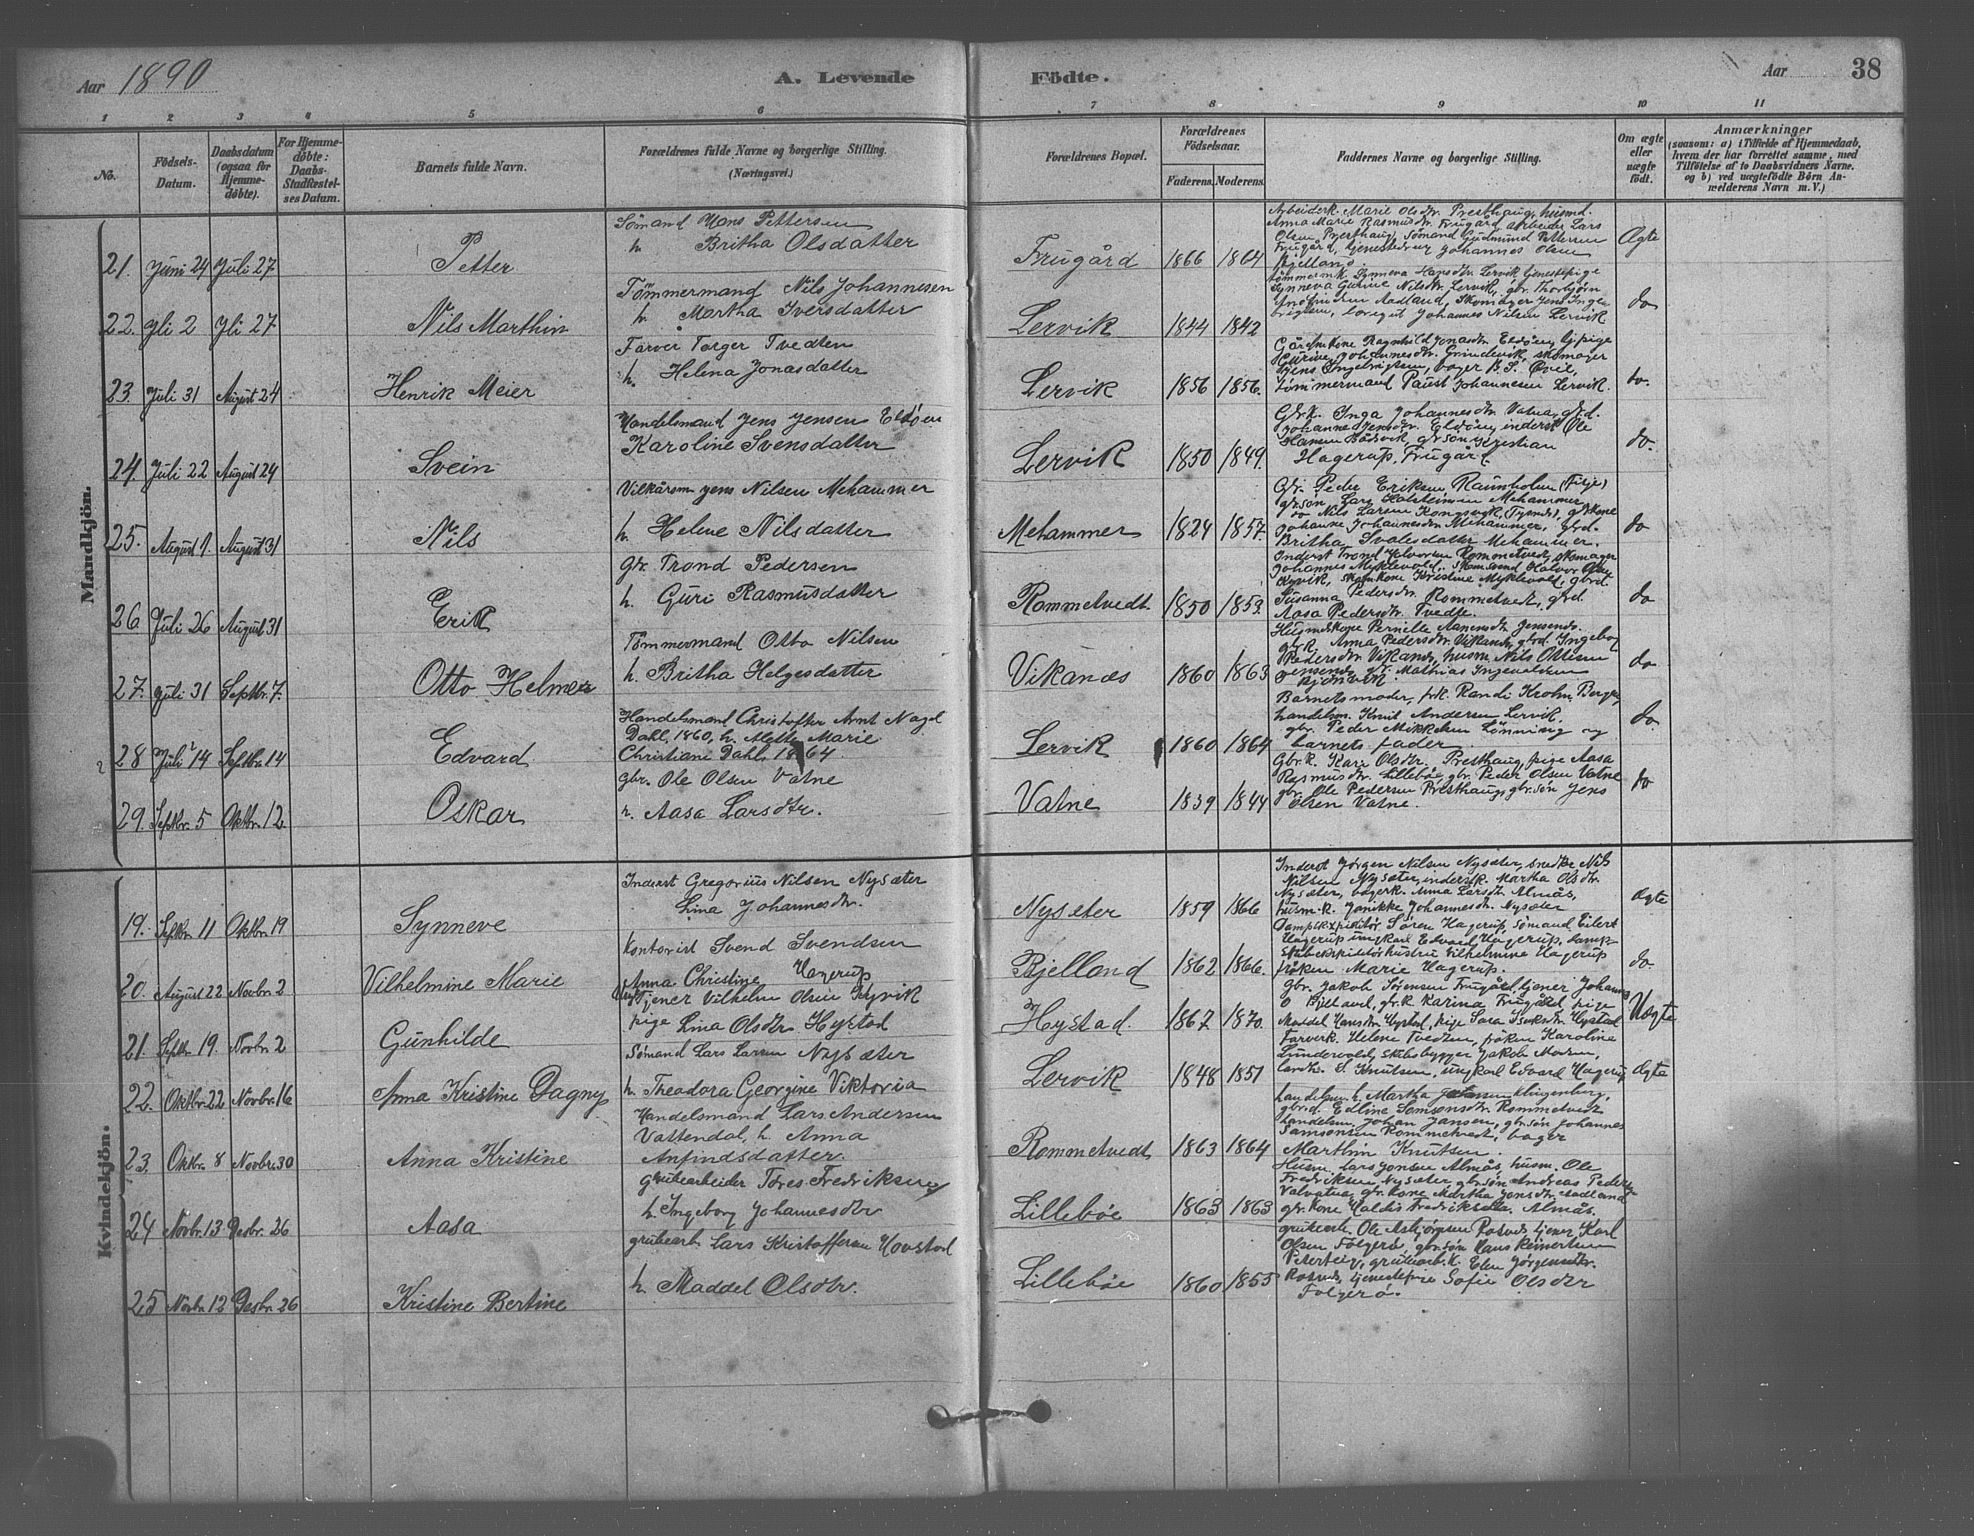 Aar 1890
A. Levende
Födte.
Aar
38
1 2 3 4 5 6 7 8 9 10 11
No.
Födsels-Datum.
Daabsdatum (ogsaa for Hjemmedöbte).
For Hjemmedöbte: Daabs-Stadfæstelses Datum.
Barnets fulde Navn.
Forældrenes fulde Navne og borgerlige Stilling.
(Næringsvei.)
Forældrenes Bopæl.
Forældrenes Födselsaar.
Faderens. Moderens.
Faddernes Navne og borgerlige Stilling.
Om ægte eller uægte födt.
Anmærkninger
(saasom: a) i Tilfælde af Hjemmedaab, hvem der har forrettet samme, med Tilföielse af to Daabsvidners Navne. og b) ved uægtefödte Börn Anmelderens Navn m. V.)
Mandkjön.
21. Juni 24 Juli 27 Petter
Sömand Hans Pettersen
h. Britha Olsdatter
Frugård 1866 1864
Arbeiderk. Marie Olsdtr. Presthaug, husmd.
Anna Marie Rasmusdtr. Frugård, arbeider Lars
Olsen Presthaug, Sömand Gudmund Pettersen
Frugård, tjenestedreng Johannes Olsen
Bjelland.
Ægte
22. Jli 2 Jli 27 Nils Marthin
Tömmermand Nils Johannesen
h. Martha Iversdatter
Lervik 1844 1842
tömmermk. Synneva Hansdtr. Lervik, tjenestepige
Synneva Gurine Nilsdtr. Lervik, gbr. Thorbjörn
Aadland, Skomager Jens Inge
brigtsen, Johannes Nilsen Lervik
do
23. Juli 31 August 24 Henrik Meier
Farver Torger Tvedten
h. Helena Jonasdatter
Lervik 1856 1856.
Gårdmkone Ragnhild Jonasdtr. Eldöen, tj.pige
Gurine Johannesdtr. Grindevik, skomager
Jens Ingebrigtsen, bager
tömmermand Paust Johannesen Lervik.
do.
24. Juli 22 August 24 Svein
Handelsmand Jens Jensen Eldöen
Karoline Svensdatter
Lervik 1850 1849.
Gbr.k. Inga Johannesdtr. Vatna, gbrd.
Johanne Jensdtr. Eldöen, inderst Ole
Hansen Båtsvik, gbrsön Kristian
Hagerup, Frugård.
do.
25. August 9. August 31 Nils
Vilkårsm. Jens Nilsen Mehammer
h. Helene Nilsdatter
Mehammer 1824 1857.
Gbr. Peder Eriksen Raunholm (Fitje)
gbrsön Lars Holsteinsen Mehammer
do Nils Larsen Kongsvik, Tysnæs, gbrkone
Johanne Johannesdtr. Mehammer, gbrd.
Britha Svalesdatter Mehammer.
do
26 Juli 26 August 31 Erik
Gbr. Trond Pedersen
h. Guri Rasmusdatter
Rommetvedt. 1850 1853.
Inderst Trond Rommetvedt, skomager
Johannes Myklevold,
skomkone Kristine Myklevold, gbrd.
Susanna Pedersdtr. Rommetvedt, gbrd.
Aasa Pedersdtr. Tvedte.
do
27. Juli 31 Septbr. 7. Otto Helmer
Tömmermand Otto Nilsen
h. Britha Helgesdatter
Vikanæs 1860 1863
Husmdskone Pernille Jensenes.
gbrk. Anna Pedersdtr. Vikanes, gbrd. Ingeborg
Pedersdtr. Vikanes, husm. Nils Ottesen
Jensenes, gbr. Mathias Ingevaldsen
do
28 Juli 14 Septbr. 14 Edvard
Handelsmand Christoffer Arnt Nagel
Dahl, 1860, h. Alette Marie
Christiane Dahl, 1864.
Lervik 1860 1864
Barnets moder, frk. Randi Krohn Bergen,
handelsm. Knut Andersen Lervik,
gbr. Peder Mikkelsen Lönning og
barnets fader
do.
29. Septbr. 5 Oktbr. 12 Oskar
gbr. Ole Olsen Vatne
h. Aasa Larsdtr.
Vatne 1839 1844
Gbr.k. Kari Olsdtr. Presthaug, pige Aasa
Rasmusdtr. Lillebøe, gbr. Peder Olsen Vatne
gbr. Ole Pedersen Presthaug, gbr.sön Jens
Olsen Vatne.
do
Kvindekjön.
19. Septbr. 11 Oktbr. 19 Synneve
Inderst Gregorius Nilsen Nysæter
Lina Johannesdtr.
Nysæter 1859 1866
Inderst Jørgen Nilsen Nysæter, snedker Nils
Nilsen Nysæter, inderstk. Martha Olsdtr.
Nysæter, bagerk. Anna Larsdtr. Almås,
husm.k. Janikke Johannesdtr. Nysæter
ægte
20. August 22 Novbr. 2 Vilhelmine Marie
Kontorist Svend Svendsen
Anna Christine Hagerup
Bjelland 1862 1866.
Dampskexpeditör Sören Hagerup, Sömand Eilert
Hagerup, ungkarl Edvard Hagerup, damp-
skibsexpeditörhustru Vilhelmine Hagerup
fröken Marie Hagerup.
do.
21. Septbr. 19. Novbr. 2 Gunhilde
Tjener Vilhelm Olsen Kyvik
pige Lina Olsdtr. Hystad
Hystad. 1867 1870.
Gbr. Jakob Sörensen Frugård, tjener Johannes
O. Bjelland, gbr.k. Karina Frugård, pige
Maddel Hansdtr. Hystad, pige Sara Isaksdtr. Hystad
Uægte
22. Oktbr. 22 Novbr. 16 Anna Kristine Dagny
Sömand Lars Larsen Nysæter
h. Theodora Georgine Viktoria
Lervik 1848 1851
Farverk. Helene Tvedten, fröken Karoline
Lundevold, skibsbygger Jakob
S. Knutsen, ungkarl Edvard Hagerup
ægte
23. Oktbr. 8 Novbr. 30 Anna Kristine
Handelsmand Lars Andersen
Vattendal, h. Anna
Anfindsdatter.
Rommetvedt 1863 1864
handelsm. h. Martha Klingenberg,
gbrd. Edline Samsonsdtr. Rommetvedt
handelsm. Johan Jansen, gbr.sön Johannes
Samsonsen Rommetvedt, bager
Marthin Knutsen.
24 Novbr. 13 Desbr. 26 Aasa
grubearbeider Tøres Fredriksen
h. Ingeborg Johannesdtr
Lillebøe 1863 1863
Husm. Lars Jonsen Almås, husm. Ole
Fredriksen Nysæter, gbr.sön Andreas Peders
Valvatna, gbr.kone Martha Jensdtr. Aadland
gbr.kone Valdis Fredriksdtr. Almås.
25 Novbr. 12 Desbr. 26 Kristine Bertine
grubearb. Lars Kristoffersen Hovstad
h. Maddel Olsdtr.
Lillebøe 1860 1855
grubearb. Ole Asbjørgsen Rosnes, tjener Karl
Olsen Folgerø, gbr.sön Hans Reinertsen
Peterteig, grubearb.k. Elen Jörgensdtr.
Rosnes, tjenestepige Sofie Olsdtr
Folgerø.